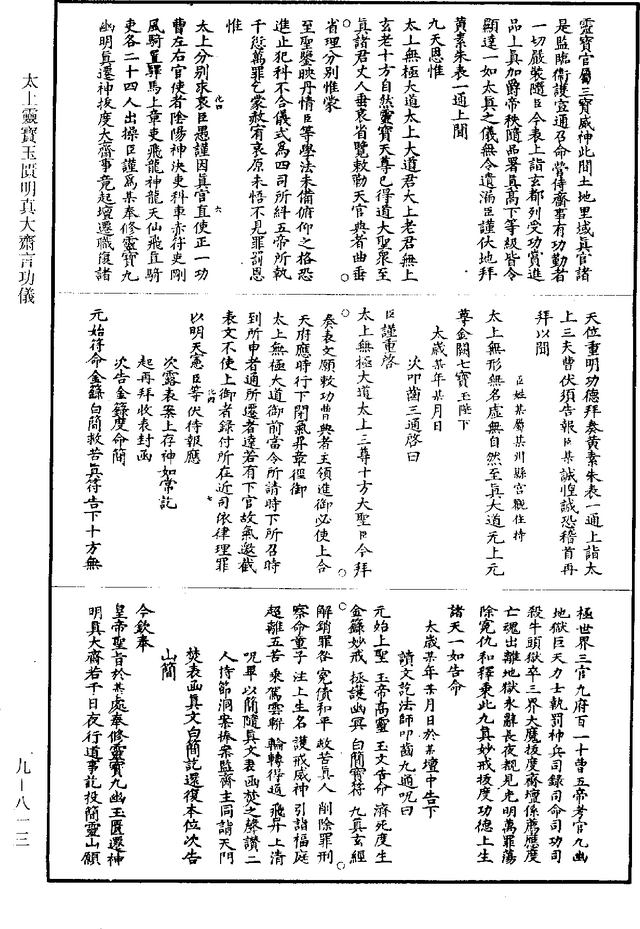 靈寶官屬三寶威神此間土地里域真官諸
是監臨衛護宣通召命營侍齋事有功勤者
一切嚴裝隨臣今表上詣玄都列受功賞進
品上真加爵帝秩隨品署真高下等級皆令
顯達一如太真之儀無令遺漏臣謹伏地拜
黃素朱表一通上聞
九天恩惟
太上無極大道太上大道君太上老君無上
玄老十方自然靈寶天尊已得道大聖眾至
真諸君丈人垂哀省覽敕勑天官典者曲垂
省理分別惟蒙
至聖鑒映丹情臣等學法未備俯仰之格恐
進止犯科不合儀式為四司所糾五帝所執
千愆萬罪乞蒙赦宥哀原未悟不見罪罰恩
惟
太上分別求哀臣愚謹因真官直使正一功
曹左右官使者陰陽神決吏科車赤符吏剛
風騎置驛馬上章吏飛龍神龍天仙飛直騎
吏各二十四人出操臣謹為某奉修靈寶九
幽明真遷神拔度大齋事竟起壇遷職復諸
天位重明功德拜奏黃素朱表一通上詣太
上三天曹伏須告報臣某誠惶誠恐稽首再
拜以聞
臣姓某屬某州縣宮觀住持
太上無形無名虛無自然至真大道元上元
尊金闕七寶玉陛下
太歲某年某月日
次叩齒三通啓曰
臣謹重啓
太上無極大道太上三尊十方大聖臣今拜
奏表文願敕功曹典者主領進御必使上合
天府應時行下閉氣昇章徑御
太上無極大道御前當令所請時下所召時
到所申者通所遷者達若有下官故氣邀截
表文不使上御者錄付所在近司依律理罪
以明天憲臣等伏待報應
次露表案上存神如常記
起再拜收表封函
次告金籙度命簡
元始符命金錄白簡救苦真符告下十方無
極世界三官九府百二十曹五帝考官九幽
地獄巨天力士執罰神兵司錄司命司功司
殺牛頭獄卒三界大魔拔度齋壇係薦應度
亡魂出離地獄永辭長夜覩見光明萬罪蕩
除冤仇和釋乘此九真妙戒拔度功德上生
諸天一如告命
太歲某年某月日於某壇中告下
讀文訖法師叩齒九通呪曰
元始上聖 玉帝高靈 玉文告命 濟死度生
金籙妙戒 拯護幽冥 白簡寶符 九真玄經
解銷罪咎 冤債和平 救苦真人 削除罪刑
察命童子 注上生名 護戒威神 引詣福庭
超離五苦 乘駕雲輧 輪轉得過 飛昇上清
呪畢以簡隨真文表函焚之琴讚二
人持節洞案捧案監齋主同詣天門
焚表函真文白簡訖還復本位次告
山簡
今欽奉
皇帝聖旨於某處奉修靈寶九幽玉匱遷神
明真大齋若干日夜行道事訖投簡靈山願
太上靈寶玉匱明真大齋言功儀
九－八一三